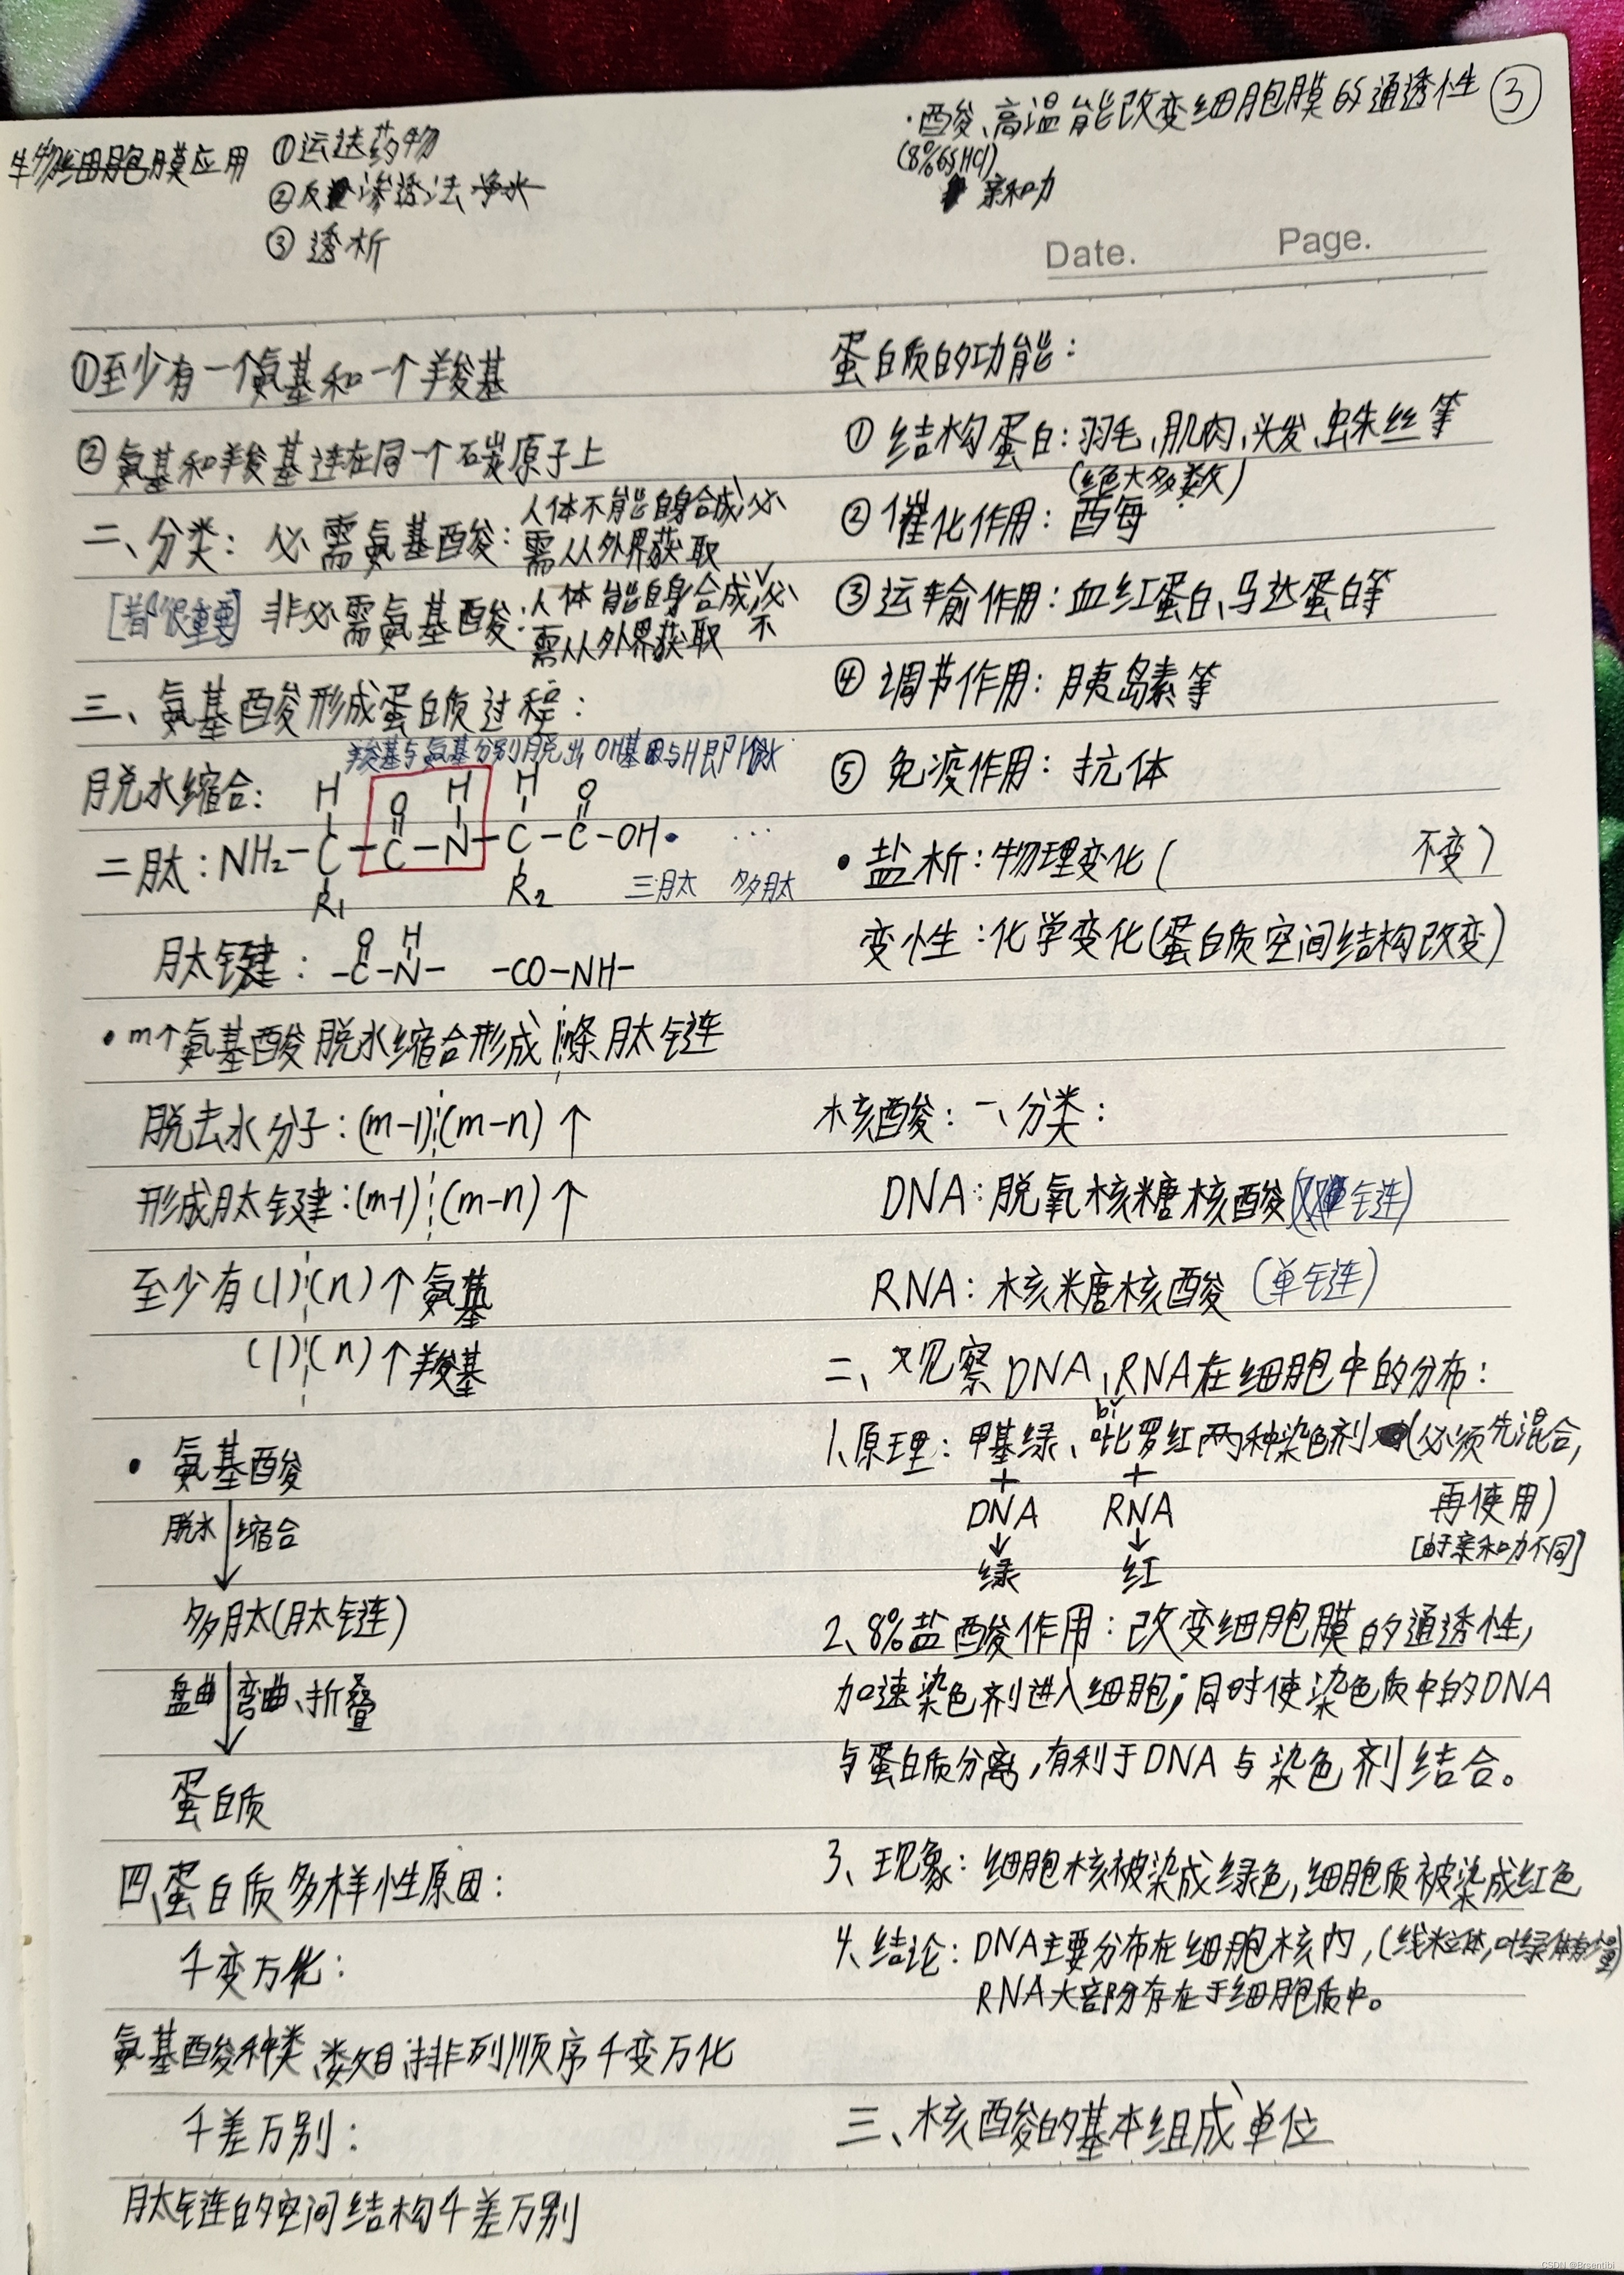 生物膜应用 ①运送药物
②反渗透法
③透析
·酸、高温能改变细胞膜的通透性 ③
(8%的HCl)
亲和力
Date. Page.
①至少有一个氨基和一个羧基
②氨基和羧基连在同一个碳原子上
二、分类：必需氨基酸：人体不能自身合成，必
需从外界获取
[都很重要] 非必需氨基酸：人体能自身合成，不必
需从外界获取
三、氨基酸形成蛋白质过程：
羧基与氨基分别脱出OH基团与H
脱水缩合：
H O H H O
二肽：NH₂-C-C-N-C-C-OH· …
R₁ R₂ 三肽 多肽
O H
肽键：-C-N- -CO-NH-
·m个氨基酸脱水缩合形成1¦n条肽链
脱去水分子：(m-1)¦(m-n)个
形成肽键：(m-1)¦(m-n)个
至少有(1)¦(n)个氨基
(1)¦(n)个羧基
·氨基酸
脱水↓缩合
多肽(肽链)
盘曲↓弯曲、折叠
蛋白质
四、蛋白质多样性原因：
千变万化：
氨基酸种类、数目、排列顺序千变万化
千差万别：
肽链的空间结构千差万别
蛋白质的功能：
①结构蛋白：羽毛、肌肉、头发、蛛丝等
(绝大多数)
②催化作用：酶
③运输作用：血红蛋白、马达蛋白等
④调节作用：胰岛素等
⑤免疫作用：抗体
·盐析：物理变化( 不变)
变性：化学变化(蛋白质空间结构改变)
核酸：一、分类：
DNA：脱氧核糖核酸(双链)
RNA：核糖核酸(单链)
二、观察DNA、RNA在细胞中的分布：
bǐ
1、原理：甲基绿、吡罗红两种染色剂(必须先混合,
+ +
DNA RNA 再使用)
↓ ↓ [由于亲和力不同]
绿 红
2、8%盐酸作用：改变细胞膜的通透性,
加速染色剂进入细胞；同时使染色质中的DNA
与蛋白质分离,有利于DNA与染色剂结合。
3、现象：细胞核被染成绿色,细胞质被染成红色
4、结论：DNA主要分布在细胞核内,(线粒体,叶绿体有少量)
RNA大部分存在于细胞质中。
三、核酸的基本组成单位
CSDN @Brsentibi